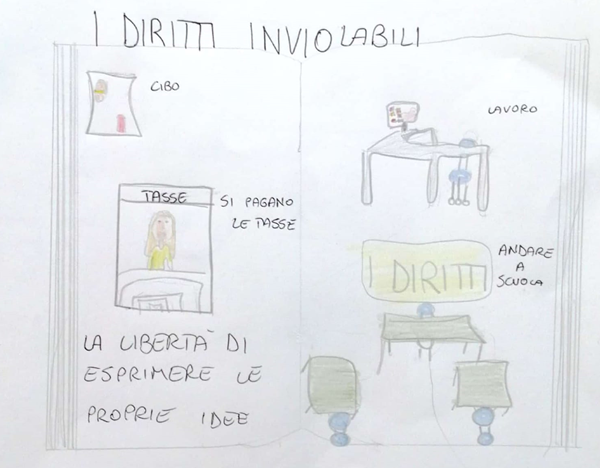 I DIRITTI INVIOLABILI
CIBO
TASSE
SI PAGANO
LE TASSE
LA LIBERTÀ DI
ESPRIMERE LE
PROPRIE IDEE
LAVORO
I DIRITTI
ANDARE
A
SCUOLA